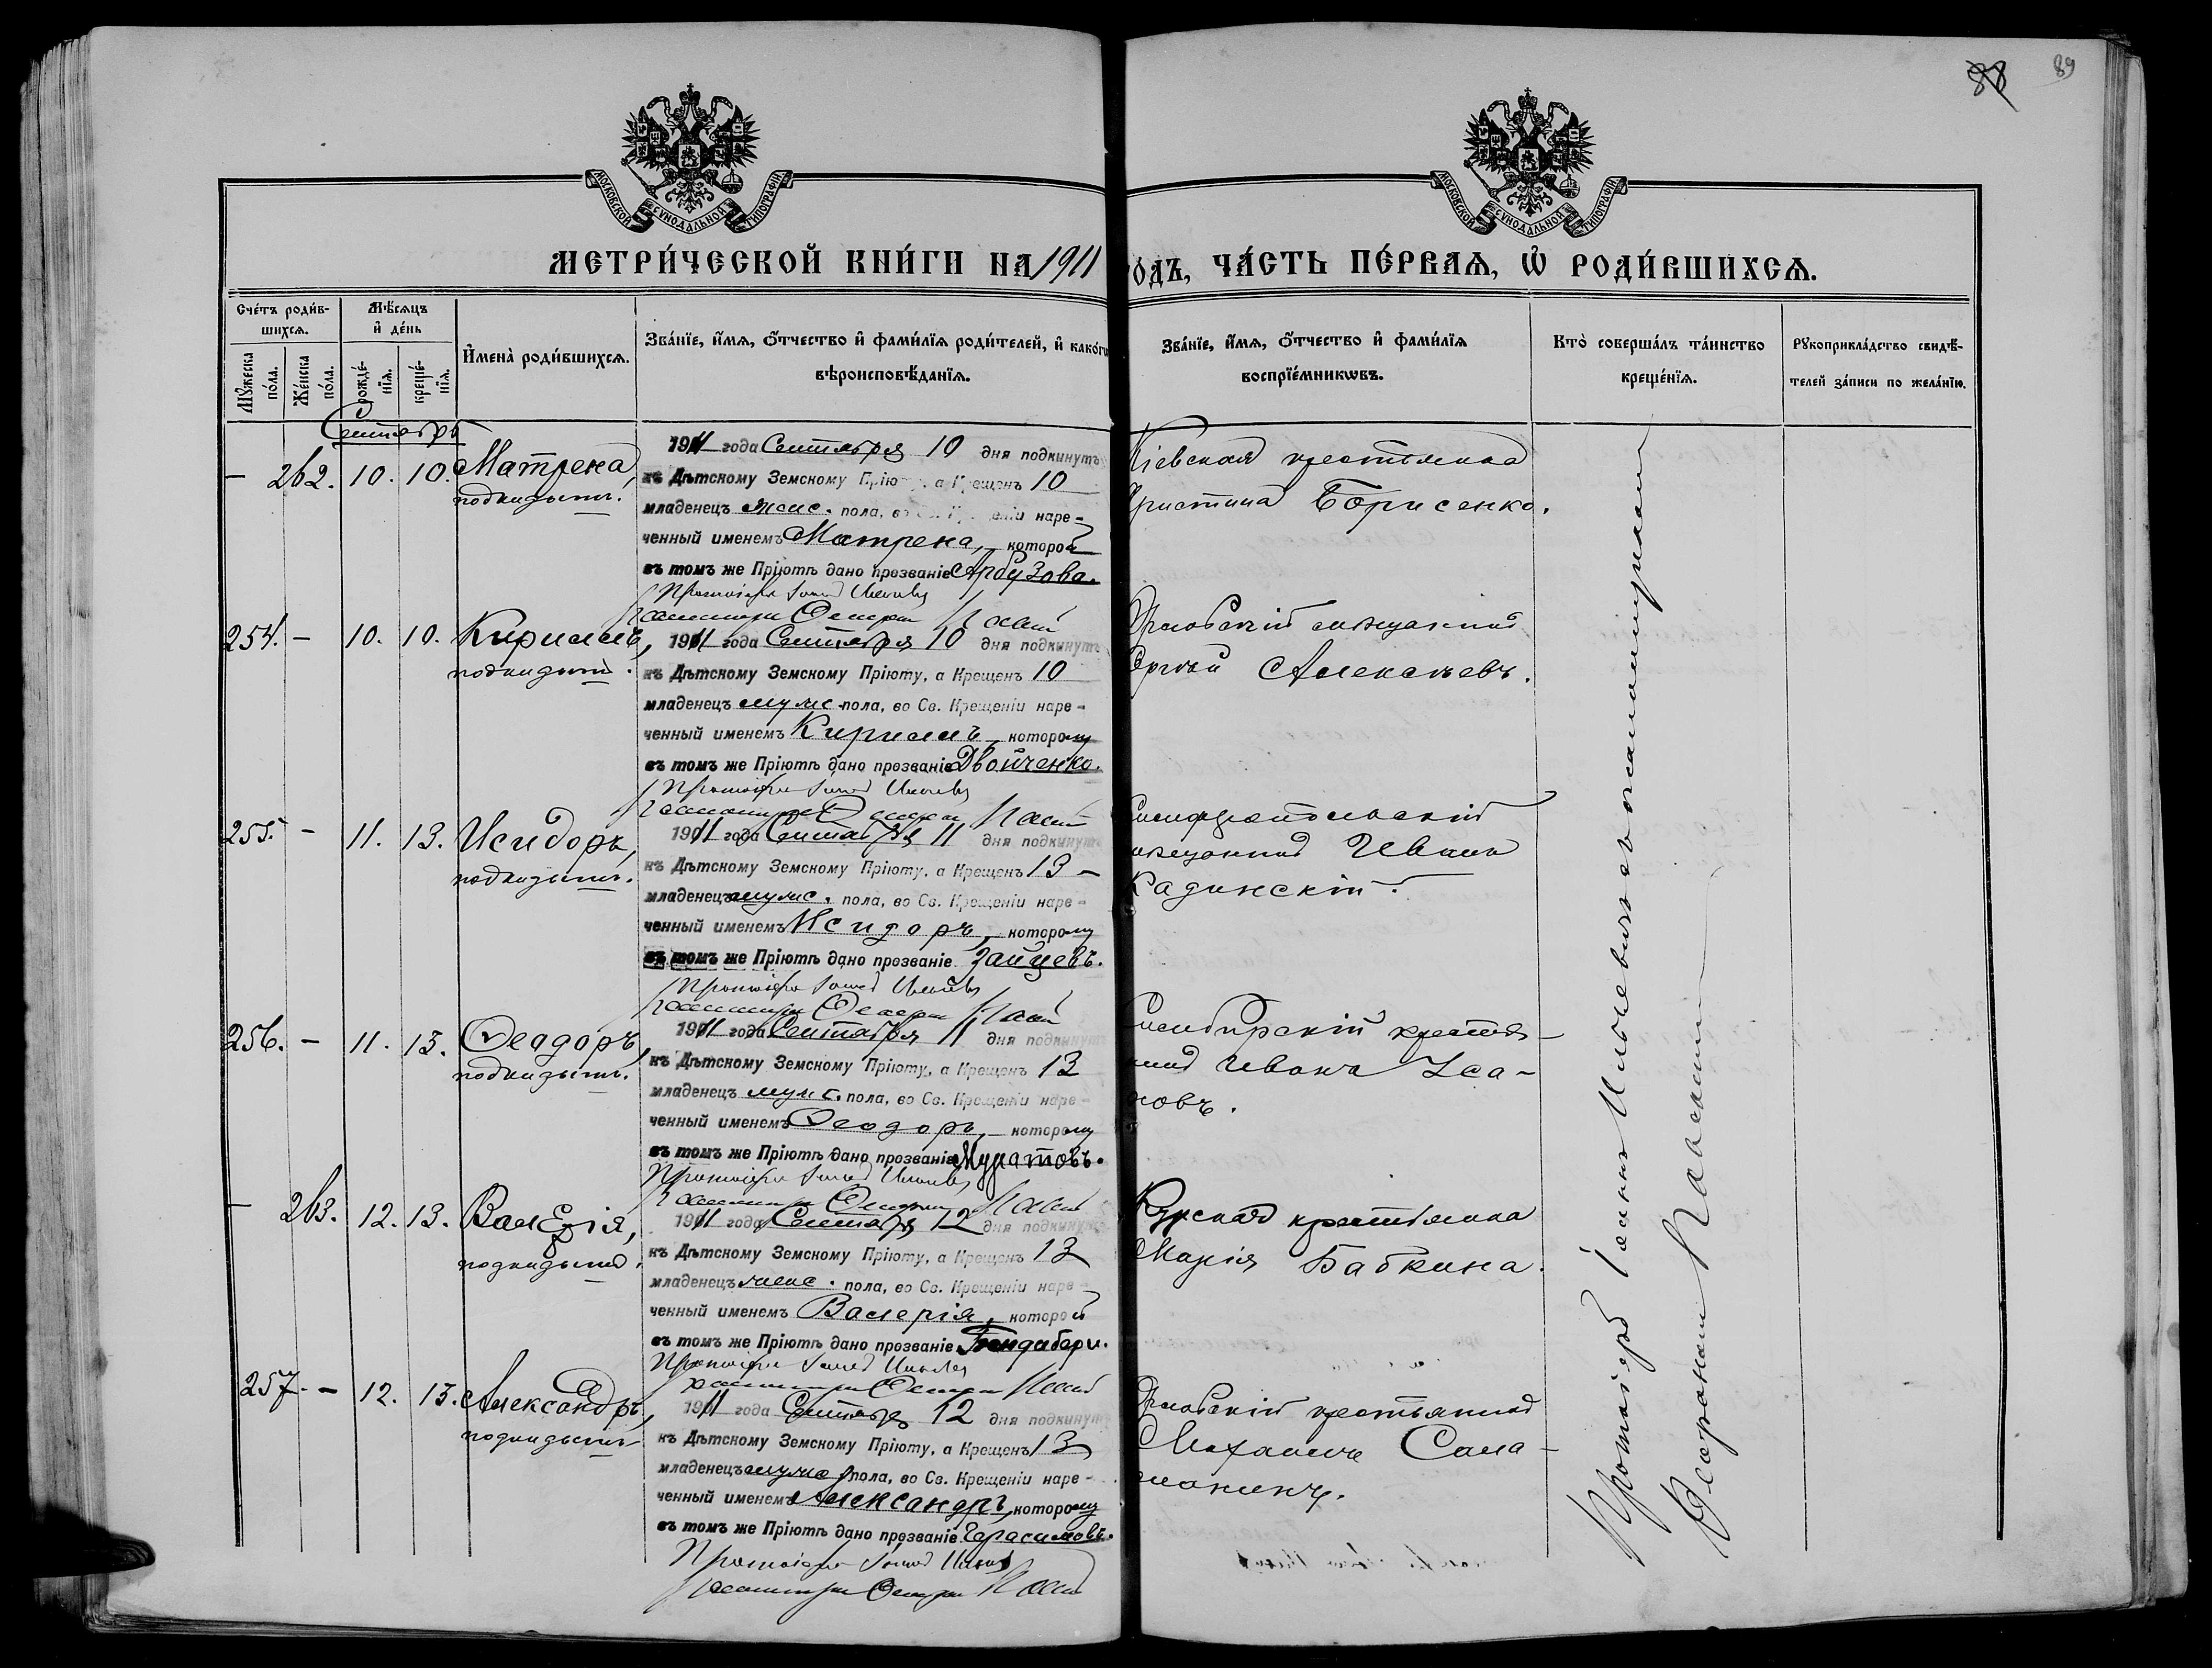 88 89
МОСКОВСКОЙ СѴНОДАЛЬНОЙ ТИПОГРАФІИ
МОСКОВСКОЙ СѴНОДАЛЬНОЙ ТИПОГРАФІИ
МЕТРИ́ЧЕСКОЙ КНИ́ГИ НА 1911
ГО́ДЪ, ЧА́СТЬ ПЕ́РВАЯ, Ѡ РОДИ́ВШИХСЯ.
Сче́тъ роди́в-
шихся.
Мꙋжеска по́ла.
Же́нска по́ла.
Мѣ́сяцъ
и де́нь
рожде́-
нїя.
креще́-
нїя.
Имена̀ роди́вшихся.
Зва́нїе, и́мя, о́тчество и фами́лїя роди́телей, и како́гѡ
вѣроисповѣ́данїя.
Зва́нїе, и́мя, о́тчество и фами́лїя
воспрїе́мникѡвъ.
Кто̀ соверша́лъ та́инство
креще́нїя.
Рꙋкоприкла́дство свидѣ́-
телей за́писи по жела́нїю.
Сентябрь
– 262. 10. 10. Матрена,
подкидышъ.
1911 года Сентября 10 дня подкинутъ
къ Дѣтскому Земскому Пріюту, а Крещенъ 10
младенецъ женс. пола, во Св. Крещеніи наре-
ченный именемъ Матрена, которой
въ томъ же Пріютѣ дано прозваніе Арбузова.
Кіевская крестьянка
Христина Борисенко.
254. – 10. 10. Кириллъ,
подкидышъ.
1911 года Сентября 10 дня подкинутъ
къ Дѣтскому Земскому Пріюту, а Крещенъ 10
младенецъ мужс. пола, во Св. Крещеніи наре-
ченный именемъ Кириллъ, которому
въ томъ же Пріютѣ дано прозваніе Двойченко.
Орловскій мѣщанинъ
Сергѣй Алексѣевъ.
255. – 11. 13. Исидоръ,
подкидышъ.
1911 года Сентября 11 дня подкинутъ
къ Дѣтскому Земскому Пріюту, а Крещенъ 13 –
младенецъ мужс. пола, во Св. Крещеніи наре-
ченный именемъ Исидоръ, которому
въ томъ же Пріютѣ дано прозваніе Зайцевъ.
Симферопольскій
мѣщанинъ Иванъ
Кадинскій.
256. – 11. 13. Ѳеодоръ,
подкидышъ.
1911 года Сентября 11 дня подкинутъ
къ Дѣтскому Земскому Пріюту, а Крещенъ 13
младенецъ мужс. пола, во Св. Крещеніи наре-
ченный именемъ Ѳеодоръ, которому
въ томъ же Пріютѣ дано прозваніе Муратовъ.
Симбирскій крестья-
нинъ Иванъ
– 263. 12. 13. Валерія,
подкидышъ.
1911 года Сентября 12 дня подкинутъ
къ Дѣтскому Земскому Пріюту, а Крещенъ 13
младенецъ женс. пола, во Св. Крещеніи наре-
ченный именемъ Валерія, которой
въ томъ же Пріютѣ дано прозваніе
Курская крестьянка
Марія Бабкина.
257. – 12. 13. Александръ,
подкидышъ
1911 года Сентября 12 дня подкинутъ
къ Дѣтскому Земскому Пріюту, а Крещенъ 13
младенецъ мужс. пола, во Св. Крещеніи наре-
ченный именемъ Александръ, которому
въ томъ же Пріютѣ дано прозваніе Герасимовъ.
Орловскій крестьянинъ
Михаилъ
Протоіерей Іоаннъ съ псаломщикомъ